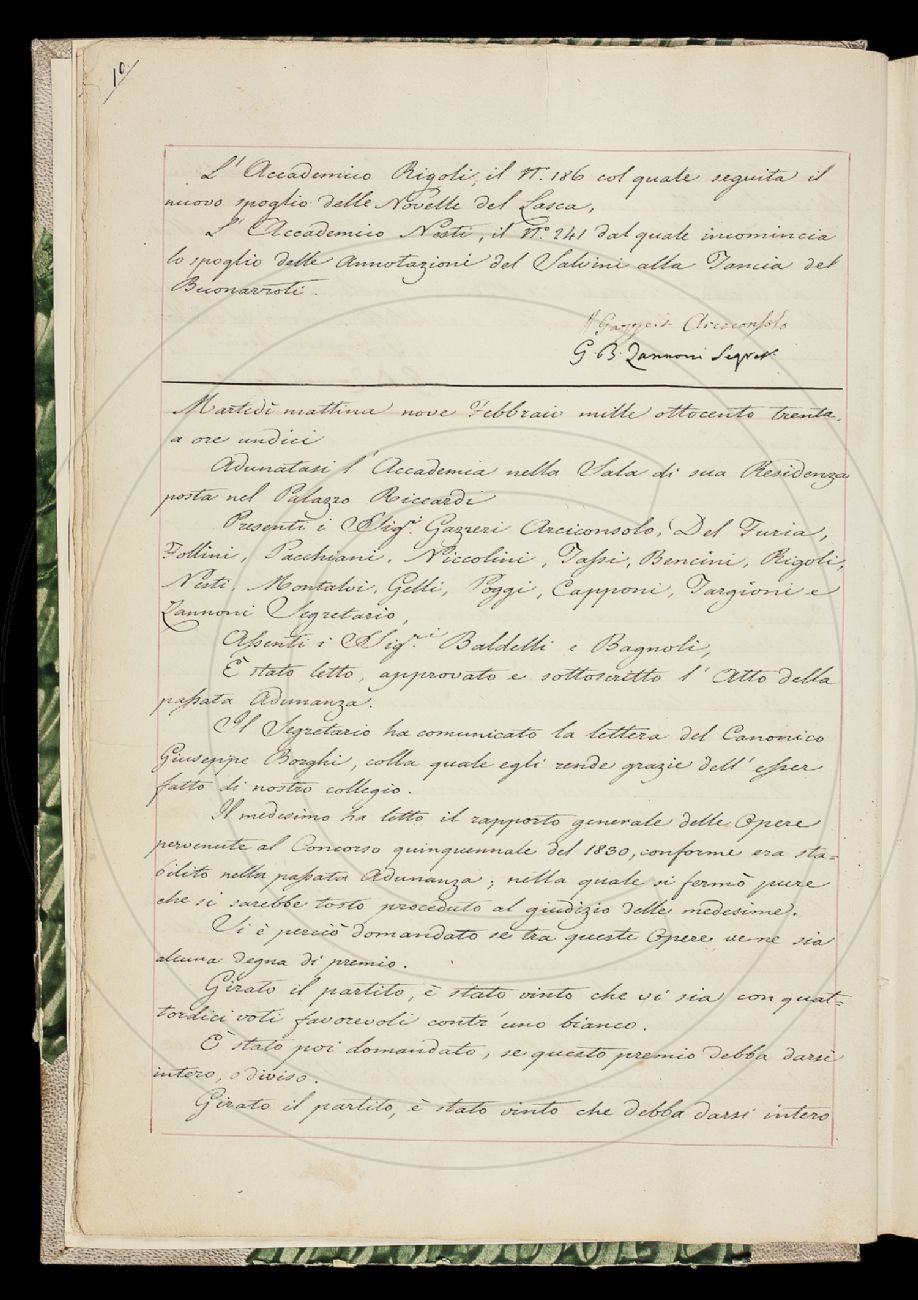 10.
L' Accademico Rigoli, il N.° 186 col quale seguita il
nuovo spoglio delle Novelle del Lasca,
L' Accademico Nesti, il N.° 241 dal quale incomincia
lo spoglio delle Annotazioni del Salvini alla Tancia del
Buonarroti.
Gazzeri Arciconsolo
G B. Zannoni Segret.
Martedì mattina nove Febbraio mille ottocento trenta,
a ore undici
Adunatasi l' Accademia nella Sala di sua Residenza
posta nel Palazzo Riccardi
Presenti i SSig.ri Gazzeri Arciconsolo, Del Furia,
Follini, Pacchiani, Niccolini, Tassi, Bencini, Rigoli,
Nesti, Montalvi, Gelli, Poggi, Capponi, Targioni e
Zannoni Segretario,
Assenti i SSig.ri Baldelli e Bagnoli,
È stato letto, approvato e sottoscritto l' Atto della
passata Adunanza.
Il Segretario ha comunicato la lettera del Canonico
Giuseppe Borghi, colla quale egli rende grazie dell' esser
fatto di nostro collegio.
Il medesimo ha letto il rapporto generale delle Opere
pervenute al Concorso quinquennale del 1830, conforme era sta=
bilito nella passata Adunanza; nella quale si fermò pure
che si sarebbe tosto proceduto al giudizio delle medesime.
Si è perciò domandato se tra queste Opere ve ne sia
alcuna degna di premio.
Girato il partito, è stato vinto che vi sia con quat=
tordici voti favorevoli contr' uno bianco.
È stato poi domandato, se questo premio debba darsi
intero, o diviso.
Girato il partito, è stato vinto che debba darsi intero